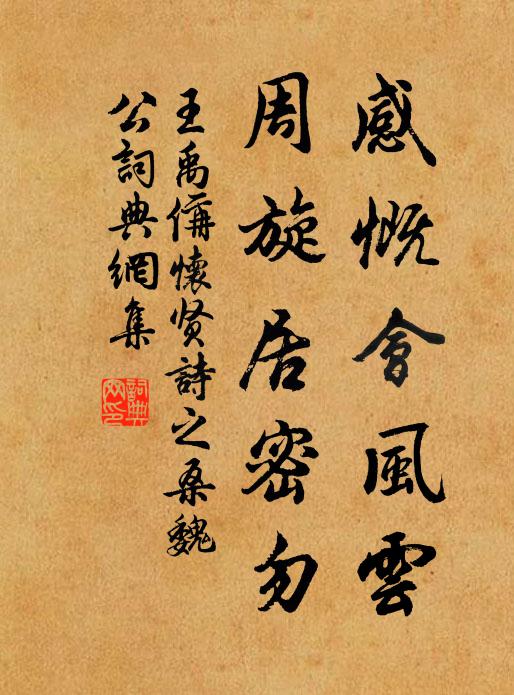 感慨會風雲
周旋居密勿
王禹偁懷賢詩之桑魏
公詞典網集
詞典
网印